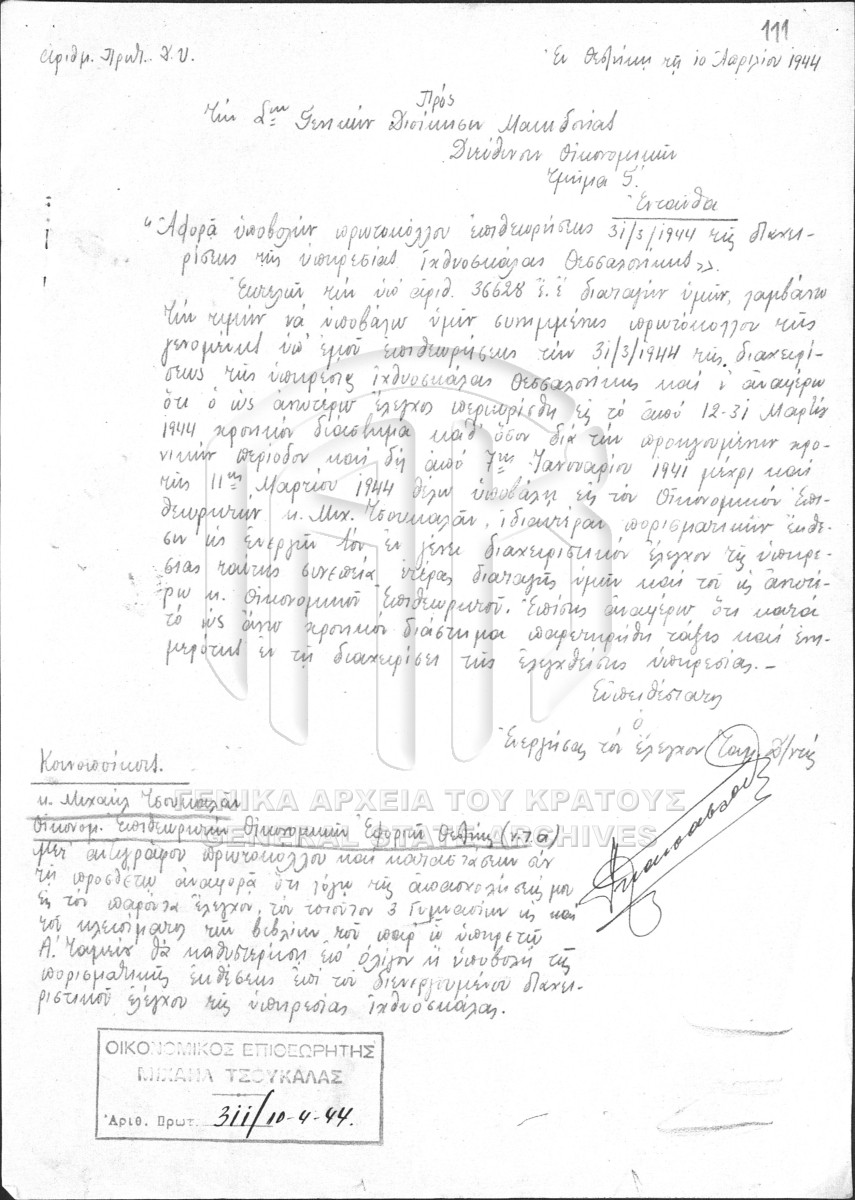 111
Ἀριθμ. Πρωτ. Δ.Υ.
Ἐν Θεσ/νίκη τῇ 10 Ἀπριλίου 1944
Πρός
Τήν Σην Γενικήν Διοίκησιν Μακεδονίας
Διεύθυνσιν Οἰκονομικῶν
Τμῆμα
Ἐνταῦθα
"Ἀφορᾶ ὑποβολήν πρωτοκόλλου ἐπιθεωρήσεως 31/3/1944 τῆς διαχει-
ρίσεως τῆς ὑπηρεσίας Ἰχθυοσκάλας Θεσσαλονίκης».
Ἐκτελῶν τήν ὑπ' ἀριθ. 36628 ἐ.ἔ διαταγήν ὑμῶν, λαμβάνω
τήν τιμήν νά ὑποβάλω ὑμῖν συνημμένως πρωτόκολλον τῆς
γενομένης ὑπ' ἐμοῦ ἐπιθεωρήσεως τήν 31/3/1944 τῆς διαχειρί-
σεως τῆς ὑπηρεσίας Ἰχθυοσκάλας Θεσσαλονίκης καί ν' ἀναφέρω
ὅτι ὁ ὡς ἀνωτέρω ἔλεγχος περιωρίσθη εἰς τό ἀπό 12-31 Μαρτίου
1944 χρονικόν διάστημα καθ' ὅσον διά τήν προηγουμένην χρο-
νικήν περίοδον καί δή ἀπό 7ης Ἰανουαρίου 1941 μέχρι καί
τῆς 11ης Μαρτίου 1944 θέλω ὑποβάλη εἰς τόν Οἰκονομικόν Ἐπι-
θεωρητήν κ. Μιχ. Τσουκαλᾶν, ἰδιαιτέραν πορισματικήν ἔκθε-
σιν ὡς ἐνεργῶν τόν ἐν γένει διαχειριστικόν ἔλεγχον τῆς ὑπηρε-
σίας ταύτης συνεπείᾳ ἑτέρας διαταγῆς ὑμῶν καί τοῦ ὡς ἀνωτέ-
ρω κ. Οἰκονομικοῦ Ἐπιθεωρητοῦ. Ἐπίσης ἀναφέρω ὅτι κατά
τό ὡς ἄνω χρονικόν διάστημα παρετηρήθη τάξις καί ἐνη-
μερότης ἐν τῇ διαχειρίσει τῆς ἐλεγχθείσης ὑπηρεσίας.-
Εὐπειθέστατος
Ὁ
Ἐνεργήσας τόν ἔλεγχον Ταμ. Δ/ντής
Κοινοποίησις.
κ. Μιχαήλ Τσουκαλᾶν
Οἰκονομ. Ἐπιθεωρητήν Οἰκονομικήν Ἐφορίαν Θεσ/νίκης
Μετ' ἀντιγράφου πρωτοκόλλου καί καταστάσεων
τῇ προσθέτῳ ἀναφορᾷ ὅτι λόγῳ τῆς ἀπασχολήσεώς μου
εἰς τόν παρόντα ἔλεγχον, τόν τοιοῦτον 3 Γυμνασίων ὡς καί
τοῦ κλεισίματος τῶν βιβλίων τοῦ παρ' ᾧ ὑπηρετῶ
Α' Ταμείου θά καθυστερήσῃ ἐπ' ὀλίγον ἡ ὑποβολή τῆς
πορισματικῆς ἐκθέσεως ἐπί τοῦ διενεργουμένου διαχει-
ριστικοῦ ἐλέγχου τῆς ὑπηρεσίας Ἰχθυοσκάλας.
ΓΕΝΙΚΑ ΑΡΧΕΙΑ ΤΟΥ ΚΡΑΤΟΥΣ
GENERAL STATE ARCHIVES
ΟΙΚΟΝΟΜΙΚΟΣ ΕΠΙΘΕΩΡΗΤΗΣ
ΜΙΧΑΗΛ ΤΣΟΥΚΑΛΑΣ
Ἀριθ. Πρωτ. 311/10-4-44.